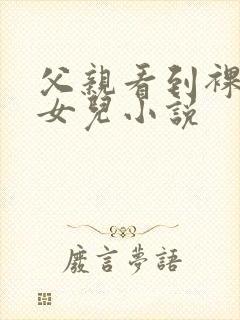 父親看到裸
女兒小説
廢言夢語